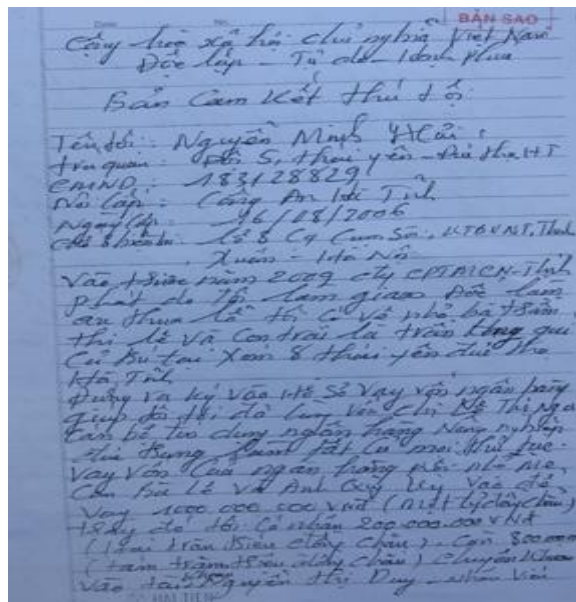 BẢN SAO
Cộng hoà xã hội chủ nghĩa Việt Nam
Độc lập - Tự do - Hạnh Phúc
Bản Cam Kết thú tội
Tên tôi: Nguyễn Minh Hải
trú quán: Đội 5, thái yên - Đức thọ HT
CMND: 183128829
Nơi cấp: Công An Hà Tĩnh
Ngày cấp: 16/08/2006
Chỗ ở hiện tại: Thanh
Xuân - Hà Nội
Vào năm 2009 cty Thịnh
phát do tôi làm giám đốc làm
ăn thua lỗ thì có về nhờ bà
thị lê và con trai là trần công quí
Cư trú tại xóm 8 thái yên đức thọ
Hà Tĩnh
Đứng ra ký vào Hồ Sơ vay vốn ngân hàng
giúp đỡ tôi chị Thị Nga
Cán bộ tín dụng ngân hàng Nông nghiệp
làm tất cả mọi thủ tục
vay vốn của ngân hàng rồi nhờ
Bà lê và Anh Quý ký vào để
vay 1000.000.000 vnđ (một tỷ đồng chẵn)
cá nhân 200.000.000 VNĐ
(Hai trăm triệu đồng chẵn) - Còn 800.000
(tám trăm triệu đồng chẵn) chuyển khoản
vào Nguyễn Thị Duy - nhân viên
HẢI TIẾN